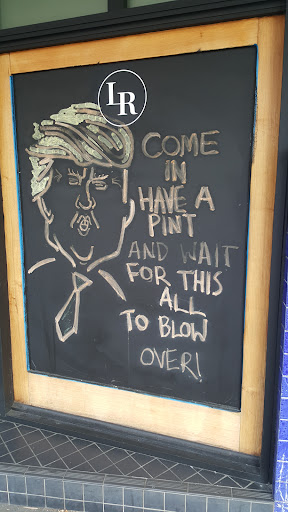 LR
COME
IN
HAVE A
PINT
AND WAIT
FOR THIS
ALL
TO BLOW
OVER!